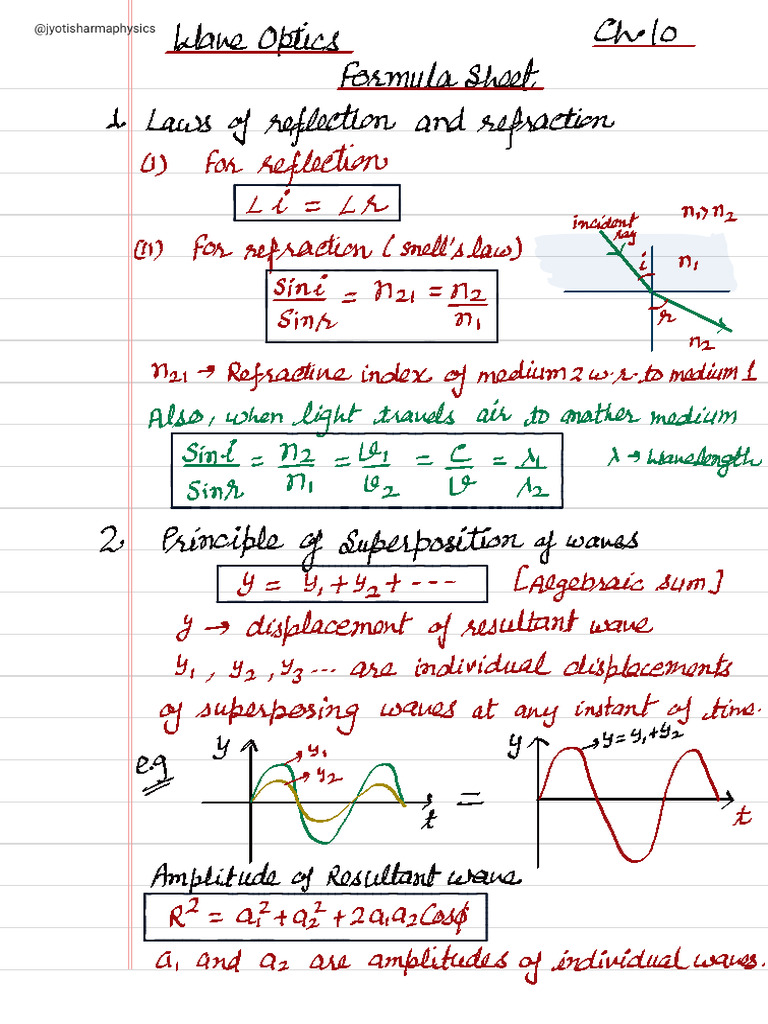 @jyotisharmaphysics
Wave Optics Ch.10
Formula Sheet.
1. Laws of reflection and refraction
(i) For reflection
∠i = ∠r
(ii) For refraction (snell's law)
Sini/Sinr = n21 = n2/n1
incident ray
n1>n2
i
n1
r
n2
n21 → Refractive index of medium 2 w.r.to medium 1
Also, when light travels air to another medium
Sini/Sinr = n2/n1 = v1/v2 = c/v = λ1/λ2
λ → wavelength
2. Principle of Superposition of waves
y = y1+y2+--- [Algebraic sum]
y → displacement of resultant wave
y1, y2, y3 --- are individual displacements
of superposing waves at any instant of time.
e.g
y
y1
y2
t
=
y
y=y1+y2
t
Amplitude of Resultant wave
R² = a1²+a2²+2a1a2Cosϕ
a1 and a2 are amplitudes of individual waves.